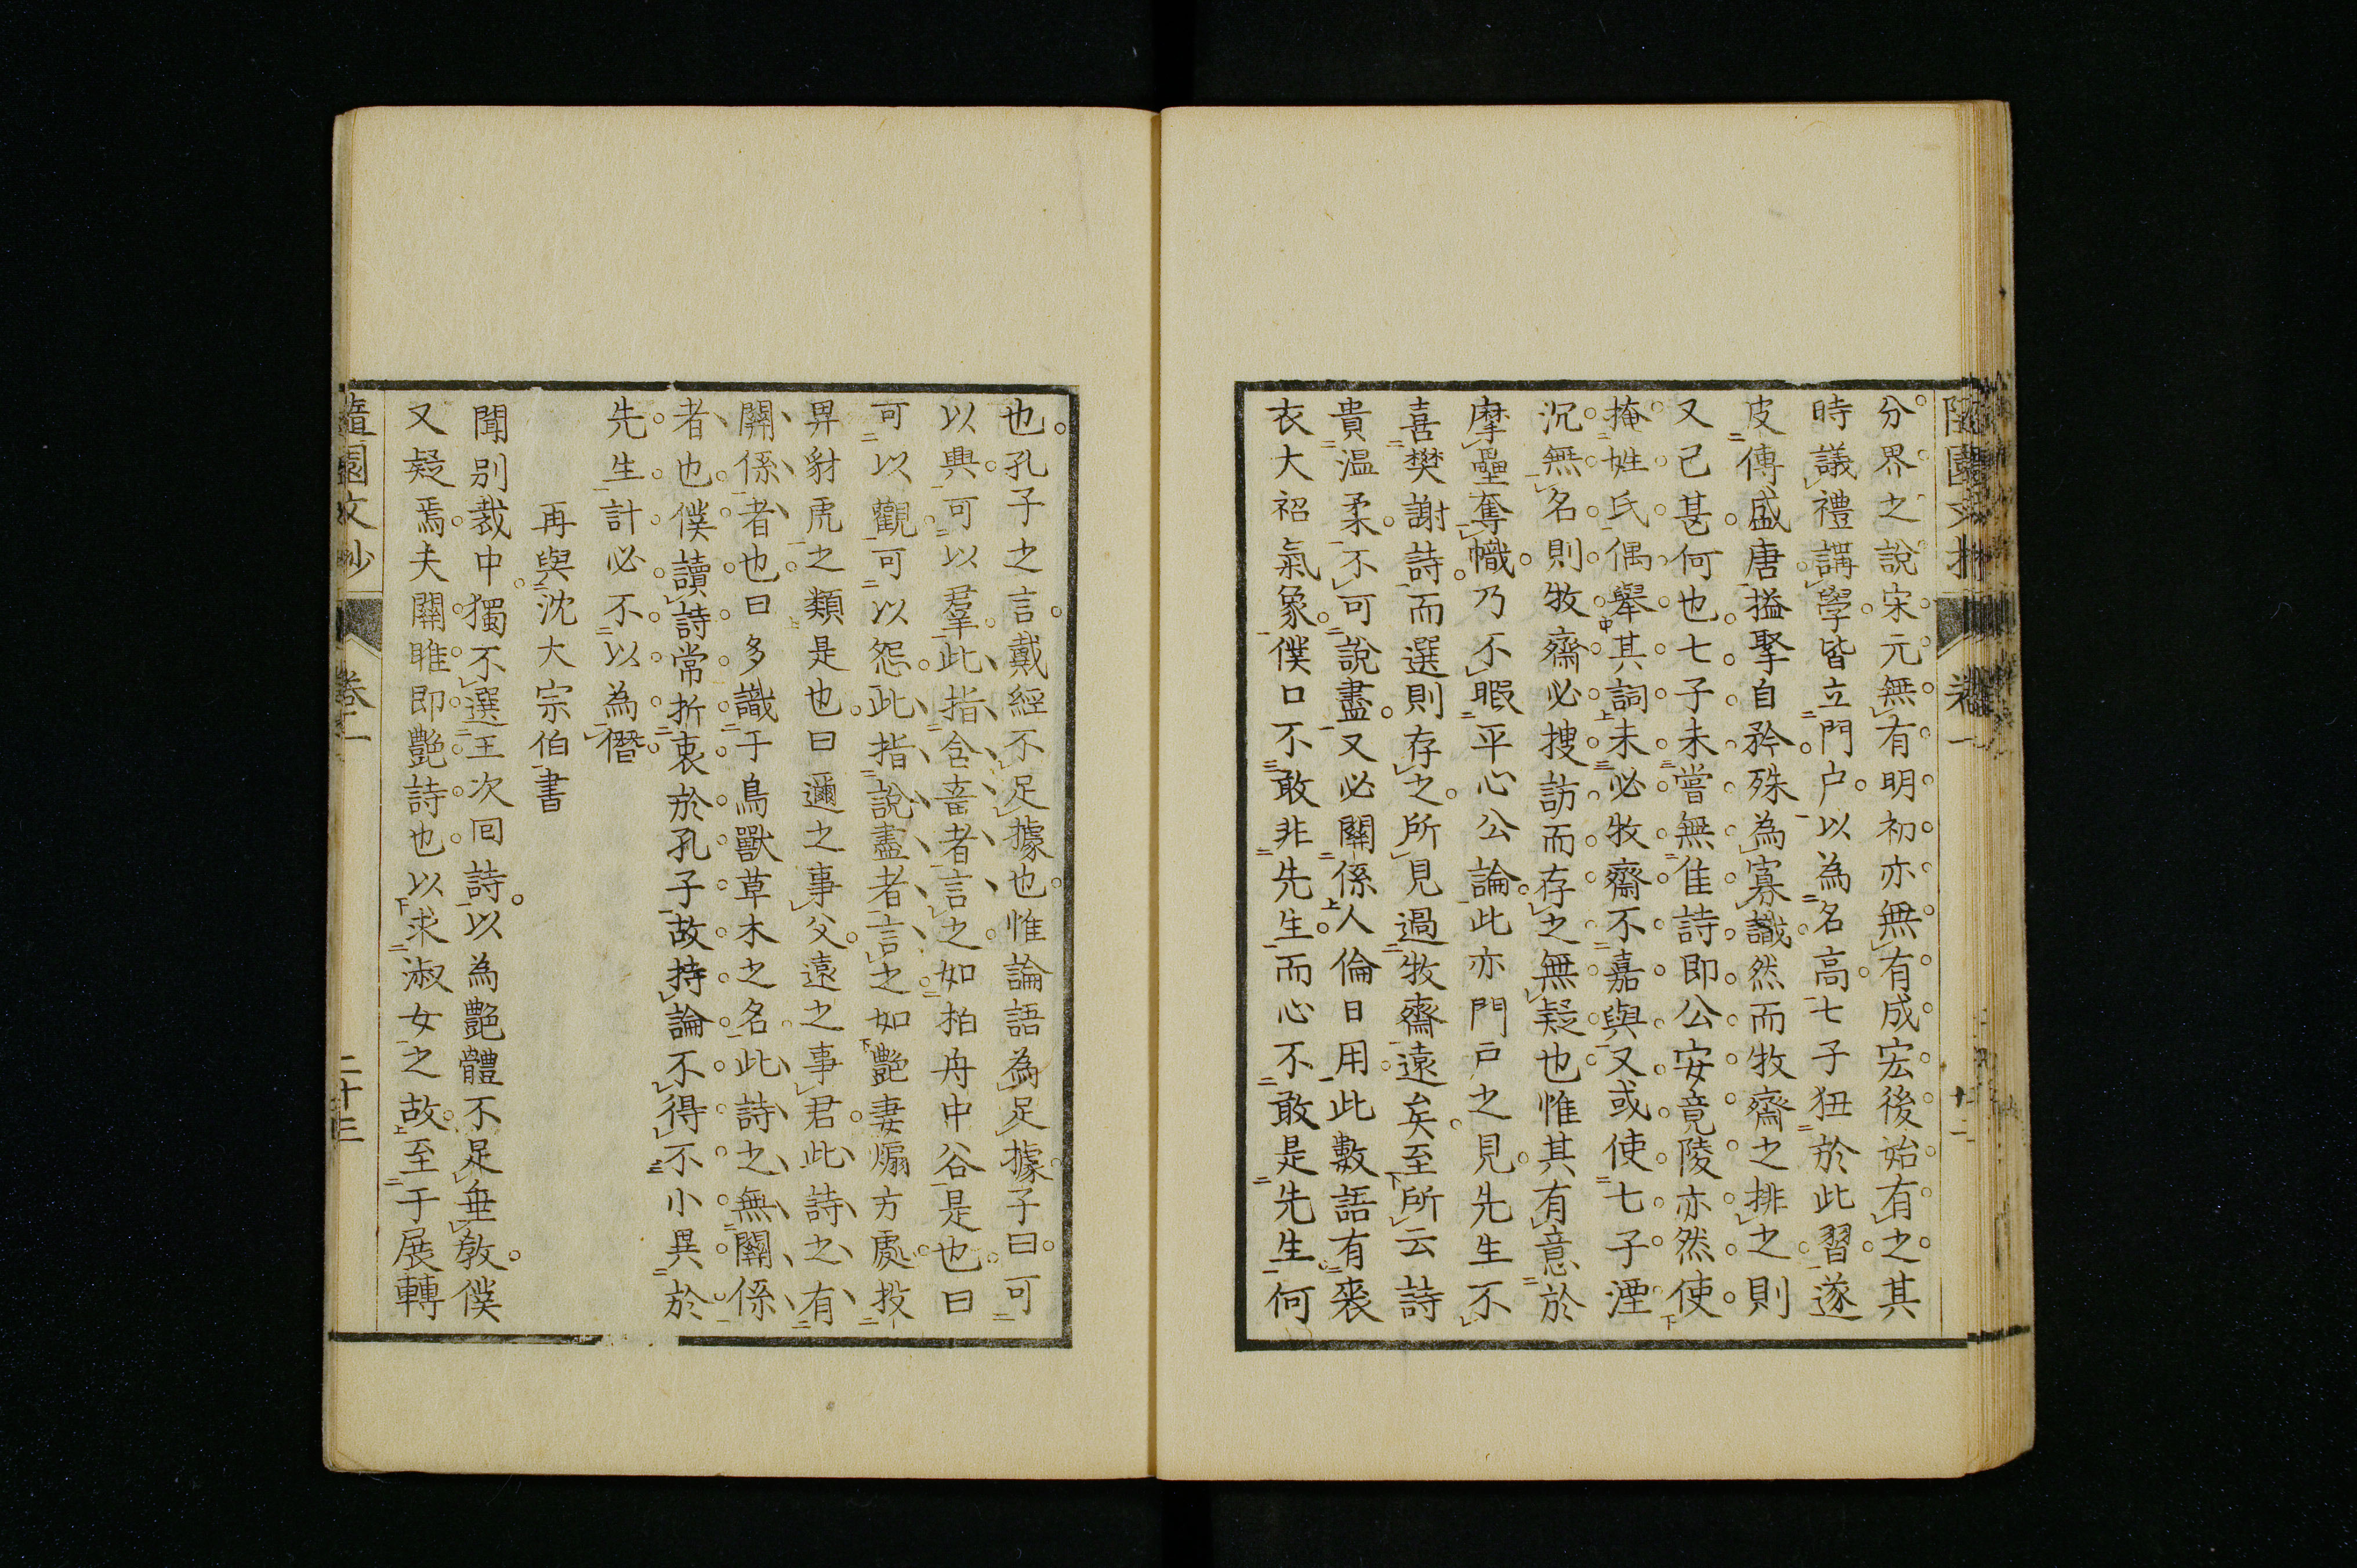 隨園文抄 卷一 十二
分界之說宋元無有明初亦無有成宏後始有之其
時議禮講學皆立門户以為名高七子狃於此習遂
皮傅盛唐搤擥自矜殊為寡識然而牧齋之排之則
又已甚何也七子未嘗無佳詩即公安竟陵亦然使
掩姓氏偶舉其詞未必牧齋不嘉與又或使七子湮
沉無名則牧齋必搜訪而存之無疑也惟其有意於
摩壘奪幟乃不暇平心公論此亦門户之見先生不
喜樊謝詩而選則存之所見過牧齋遠矣至所云詩
貴温柔不可說盡又必關係人倫日用此數語有褎
衣大袑氣象僕口不敢非先生而心不敢是先生何
也孔子之言戴經不足據也惟論語為足據子曰可
以興可以羣此指含蓄者言之如柏舟中谷是也曰
可以觀可以怨此指說盡者言之如艷妻煽方處投
畀豺虎之類是也曰邇之事父遠之事君此詩之有
關係者也曰多識于鳥獸草木之名此詩之無關係
者也僕讀詩常折衷於孔子故持論不得不小異於
先生計必不以為僭
再與沈大宗伯書
聞别裁中獨不選王次回詩以為艷體不足垂教僕
又疑焉夫關雎即艷詩也以求淑女之故至于展轉
隨園文抄 卷一 二十三